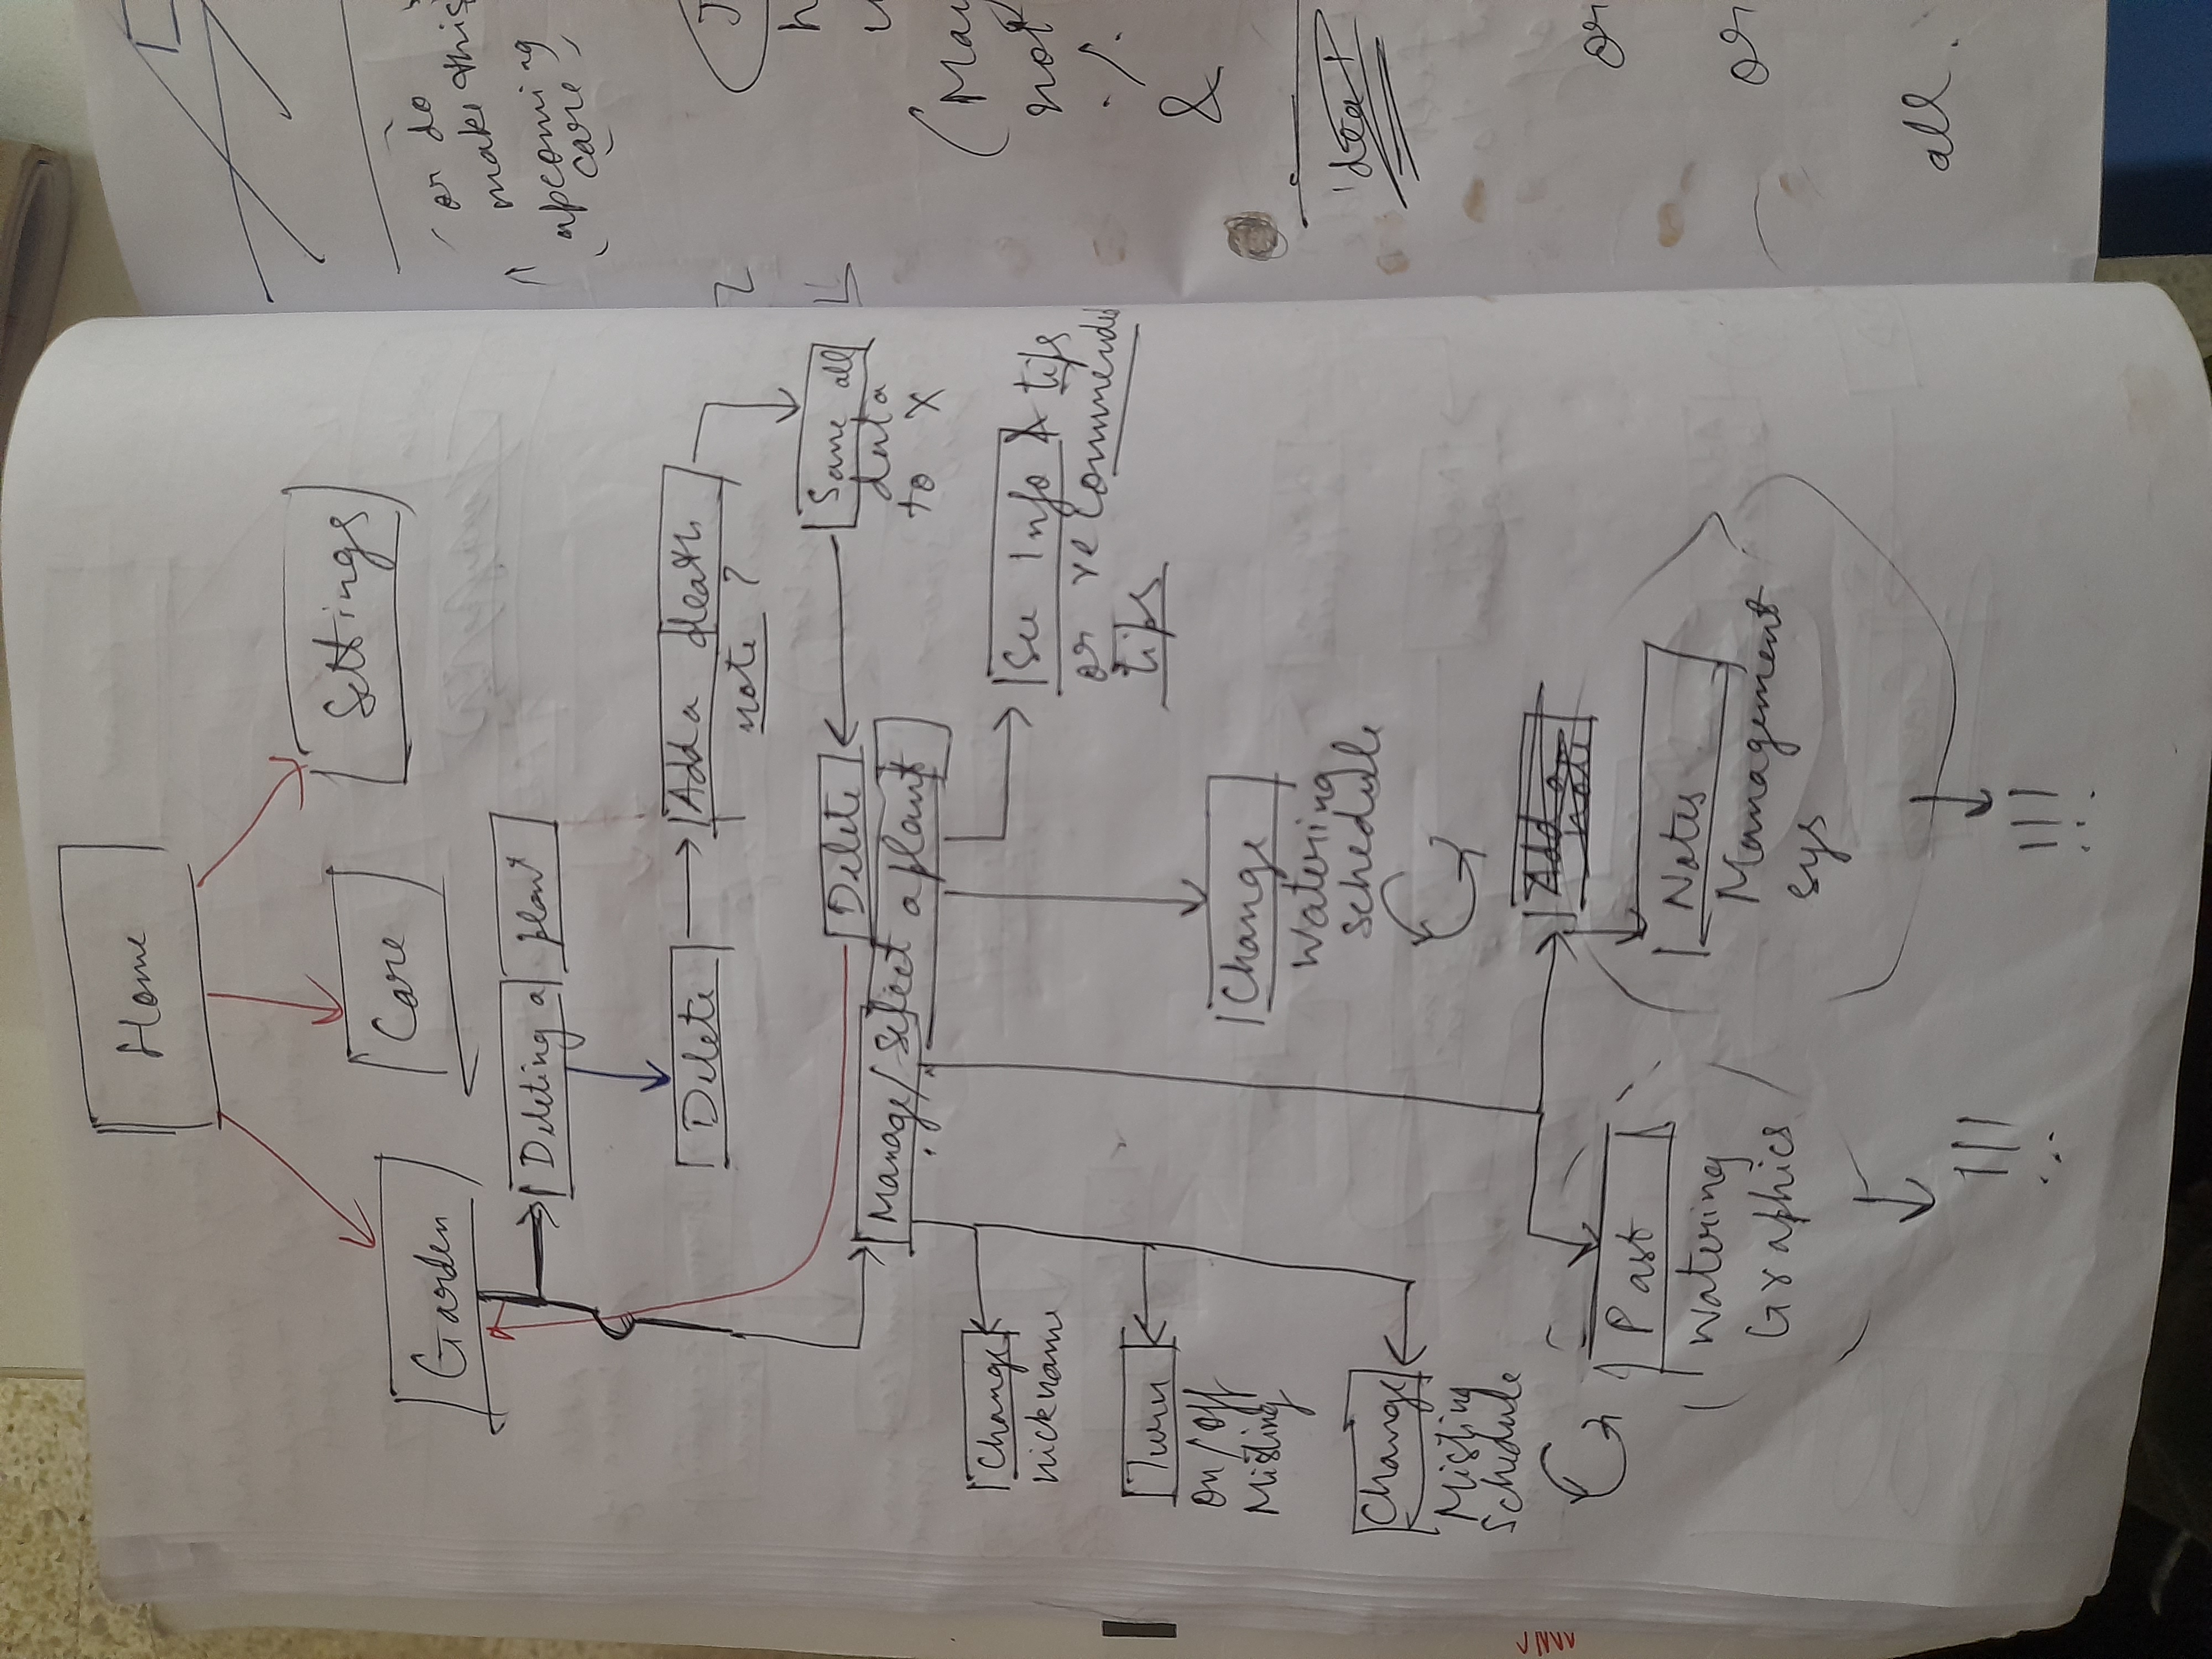 Home
Garden
Care
Settings
Deleting a plant
Delete
Add a death
note ?
Save all
data
to X
Delete
Manage/Select a plant
Change
nickname
Turn
on/off
Misting
Change
Misting
Schedule
See Info & tips
or recommended
tips
Change
Watering
Schedule
Add a
note
Past
Watering
Graphics
Notes
Management
sys
!!!
!!!
or do
make this
upcoming
care
(May
not
&
or
or
all.